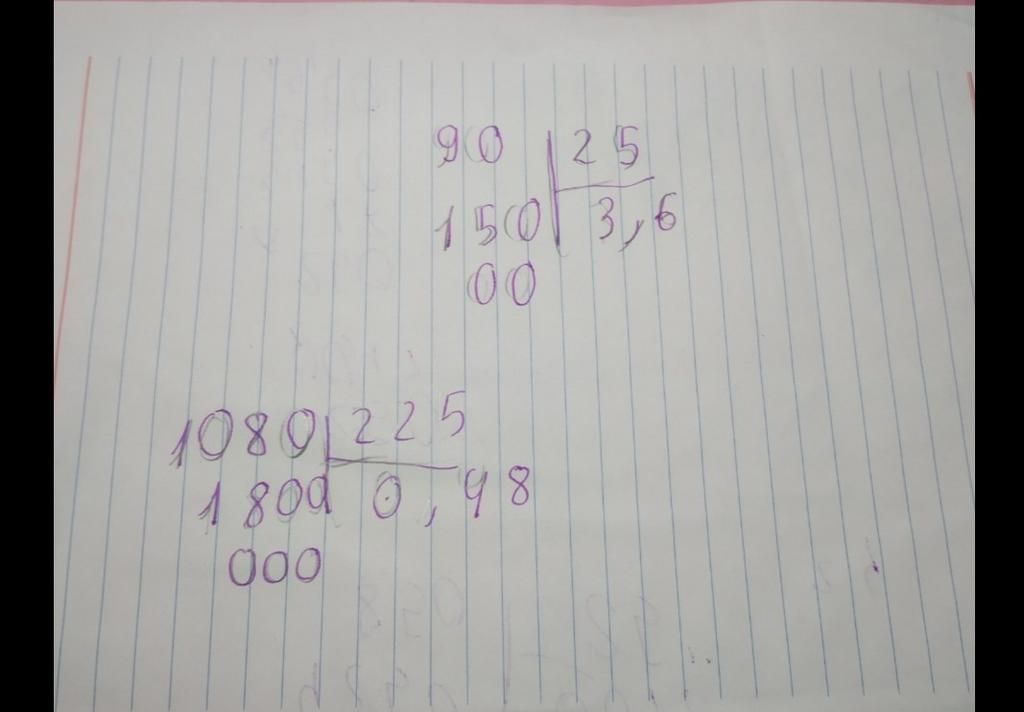 90 25
150 3,6
00
1080 225
1800 0,48
000